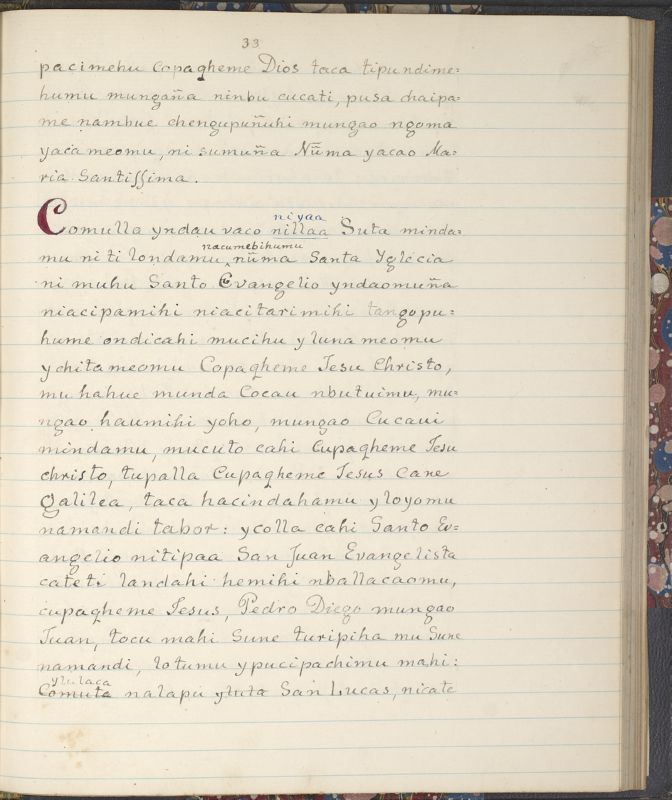 33
pacimehu Copaqheme Dios taca tipundime=
humu mungaña ninbu cucati, pusa chaipa=
me nambue chengupuñuhi mungao ngoma
yaca meomu, ni sumuña Nũma yacao Ma=
ria Santissima.
niyaa
Comulla yndau vaco nillaa Suta minda=
nacumebihumu
mu niti londamu nũma Santa Yglecia
ni muhu Santo Evangelio yndaomuña
niacipamihi niacitarimihi tangopu=
hume ondicahi mucihu y luna meomu
y chita meomu Copaqheme Jesu Christo,
mu hahue munda Cocau nbutuimu, mu=
ngao haumihi yoho, mungao Cucaui
mindamu, mucuto cahi Cupaqheme Jesu
christo, tupalla Cupaqheme Jesus Cane
galilea, taca hacindahamu y loyomu
namandi tabor: y colla cahi Santo Ev=
angelio nitipaa San Juan Evangelista
cateti landahi hemihi nballacaomu,
cupaqheme Jesus, Pedro Diego mungao
Juan, tocu mahi Sune turipiha mu Sune
namandi, lotumu y pucipachimu mahi:
ylulaca
Comuta nalapu yluta San Lucas, nicate